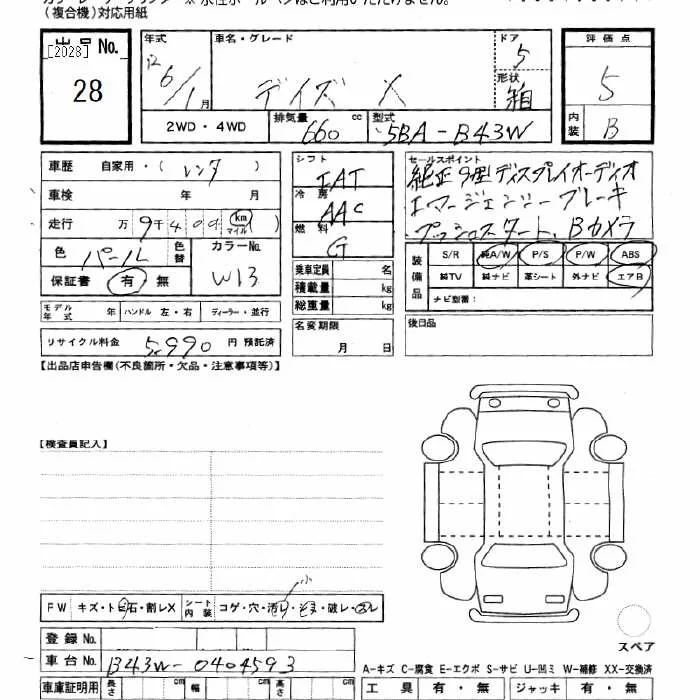 (複合機)対応用紙
出品No.
[2028]
28
年式
R
6/1月
車名・グレード
デイズ X
ドア
5
形状
箱
評価点
5
内装
B
2WD・4WD
排気量
660
cc
型式
5BA-B43W
車歴 自家用・(レンタ)
車検 年 月
走行 万 9千400 km マイル
色 パール 色替
カラーNo.
W13
保証書 有・無
モデル年式 年 ハンドル 左・右 ディーラー・並行
リサイクル料金 5,990 円 預託済
シフト
IAT
冷房
AAC
燃料
G
乗車定員 名
積載量 kg
総重量 kg
名変期限
月 日
セールスポイント
純正9型ディスプレイオーディオ
エマージェンシーブレーキ
プッシュスタート、Bカメラ
装備品
S/R 純A/W P/S P/W ABS
純TV 純ナビ 革シート 外ナビ エアB
ナビ型番:
後日品
【出品店申告欄(不良箇所・欠品・注意事項等)】
【検査員記入】
FW キズ・トビ石・割レX シート内装 コゲ・穴・汚レ・キズ・破レ・スレ
小
登録No.
車台No. B43W-0404593
車庫証明用 長さ cm 幅 cm 高さ cm
スペア
A-キズ C-腐食 E-エクボ S-サビ U-凹ミ W-補修 XX-交換済
工具 有・無 ジャッキ 有・無